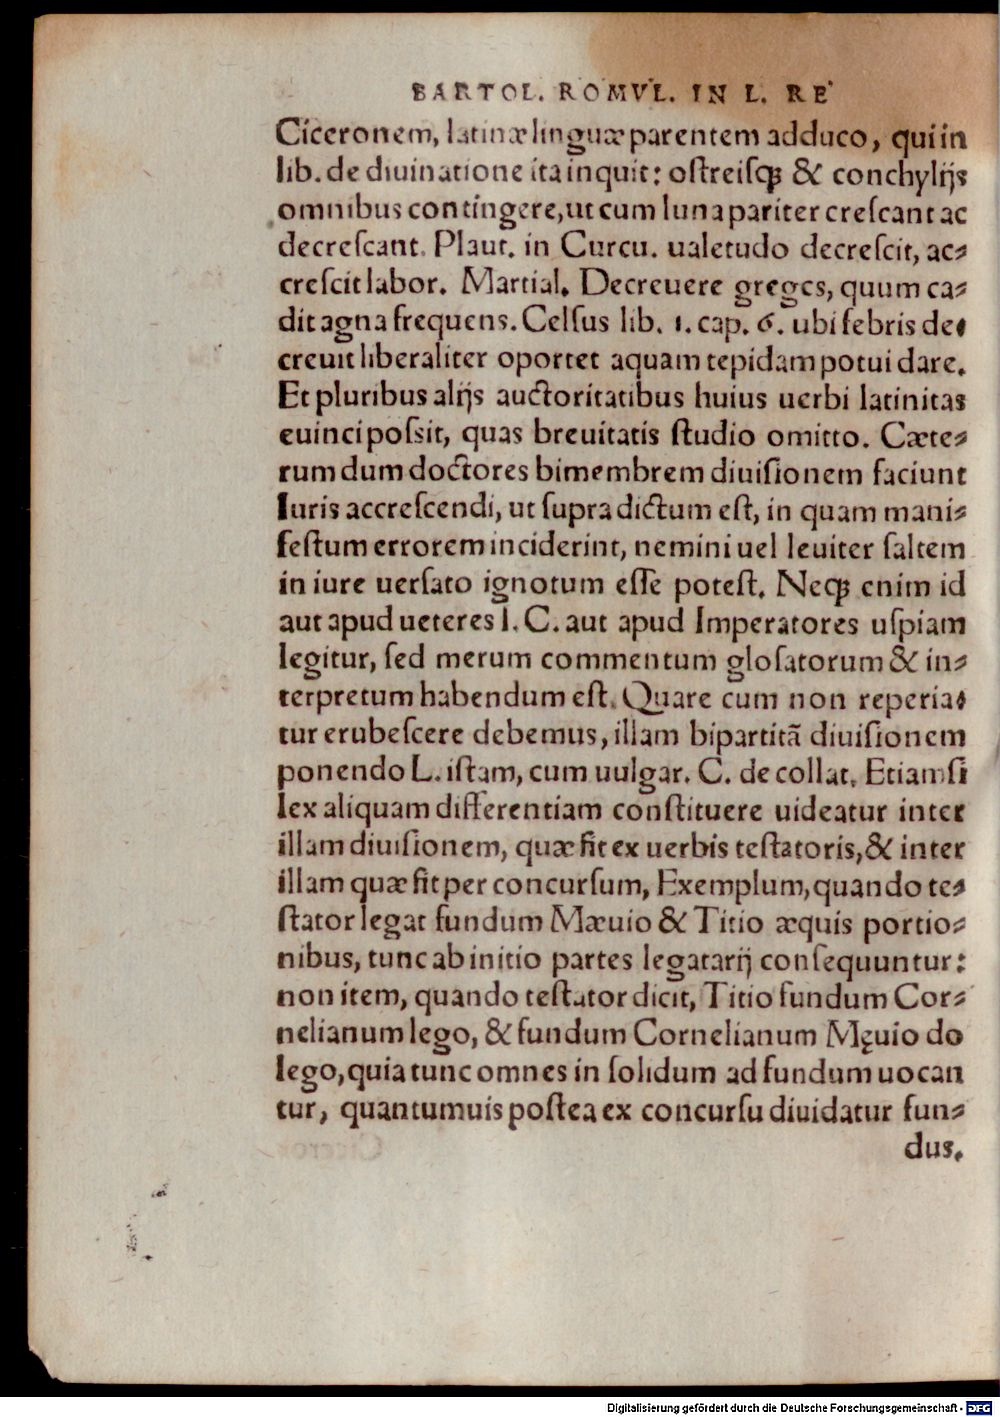 BARTOL. ROMVL. IN L. RE
Ciceronem, latinæ linguæ parentem adduco, qui in
lib. de diuinatione ita inquit: oſtreiſqꝫ & conchylijs
omnibus contingere, ut cum luna pariter creſcant ac
decreſcant. Plaut. in Curcu. ualetudo decreſcit, ac⸗
creſcit labor. Martial. Decreuere greges, quum ca⸗
dit agna frequens. Celſus lib. 1. cap. 6. ubi febris de⸗
creuit liberaliter oportet aquam tepidam potui dare.
Et pluribus alijs auctoritatibus huius uerbi latinitas
euinci poſsit, quas breuitatis ſtudio omitto. Cæte⸗
rum dum doctores bimembrem diuiſionem faciunt
Iuris accreſcendi, ut ſupra dictum eſt, in quam mani⸗
feſtum errorem inciderint, nemini uel leuiter ſaltem
in iure uerſato ignotum eſſe poteſt. Neqꝫ enim id
aut apud ueteres I. C. aut apud Imperatores uſpiam
legitur, ſed merum commentum gloſatorum & in⸗
terpretum habendum eſt. Quare cum non reperia⸗
tur erubeſcere debemus, illam bipartitã diuiſionem
ponendo L. iſtam, cum uulgar. C. de collat. Etiamſi
lex aliquam differentiam conſtituere uideatur inter
illam diuiſionem, quæ fit ex uerbis teſtatoris, & inter
illam quæ fit per concurſum, Exemplum, quando te⸗
ſtator legat fundum Mæuio & Titio æquis portio⸗
nibus, tunc ab initio partes legatarij conſequuntur:
non item, quando teſtator dicit, Titio fundum Cor⸗
nelianum lego, & fundum Cornelianum Męuio do
lego, quia tunc omnes in ſolidum ad fundum uocan
tur, quantumuis poſtea ex concurſu diuidatur fun⸗
dus.
Digitalisierung gefördert durch die Deutsche Forschungsgemeinschaft - DFG